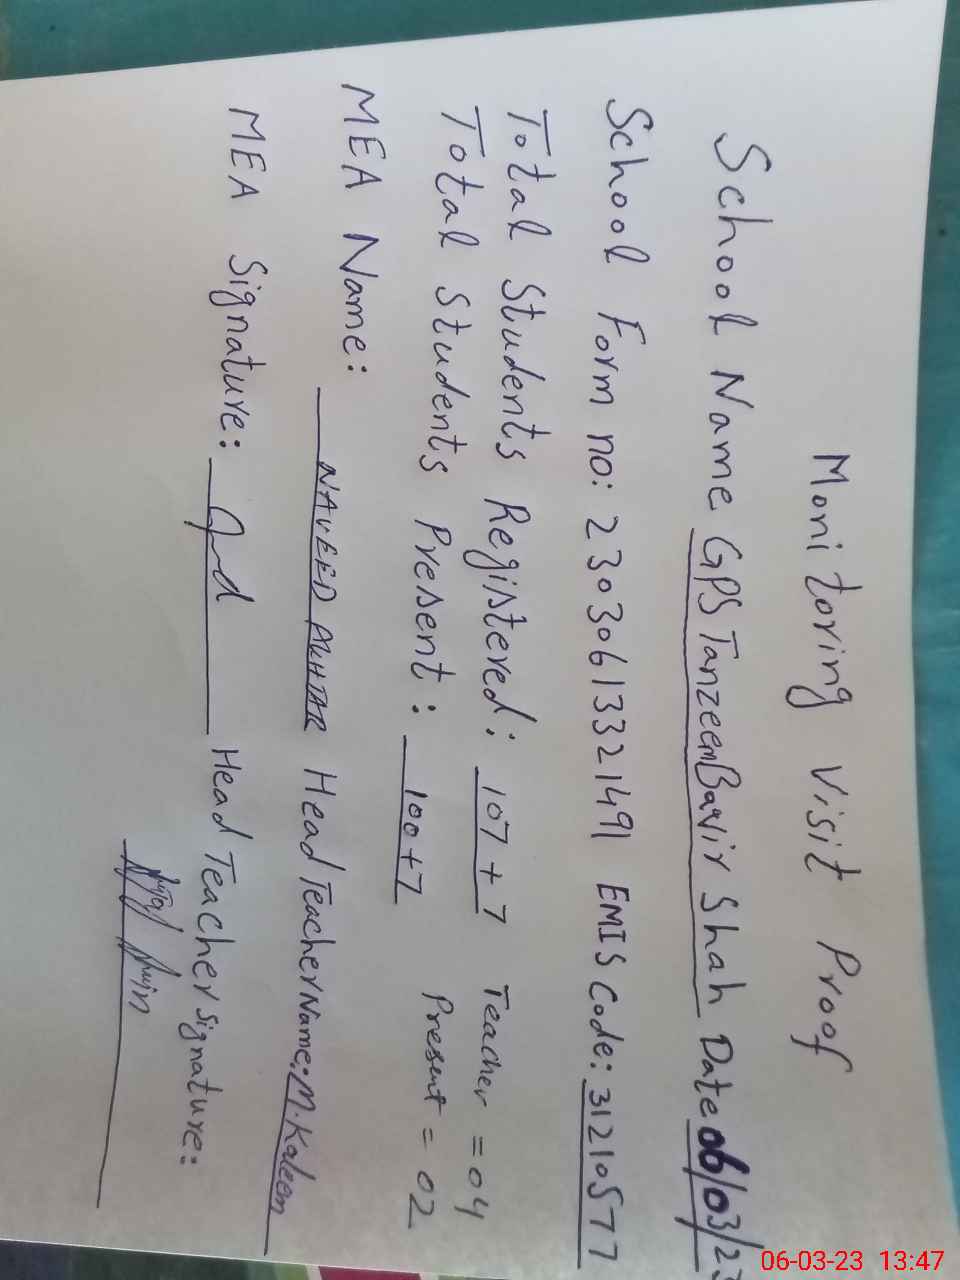 Monitoring Visit Proof
School Name GPS Tanzeem Bavir Shah Date 06/03/23
School Form no: 23030613321491 EMIS Code: 31210577
Total Students Registered: 107+7 Teacher = 04
Total Students Present: 100+7 Present = 02
MEA Name: NAVEED AKHTAR Head Teacher Name: M. Kaleem
MEA Signature: Head Teacher Signature:
06-03-23 13:47